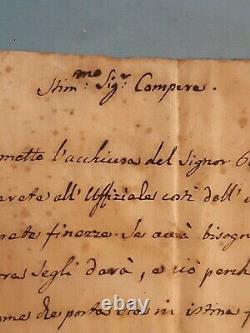 Stim:mo Sig:r Compere.
metto l'acchiusa del Signor
arete all'Uffiziale costì dell'
rete finezze. Se avrà bisog
ras segli darà, e ciò perch
me che portas in istima